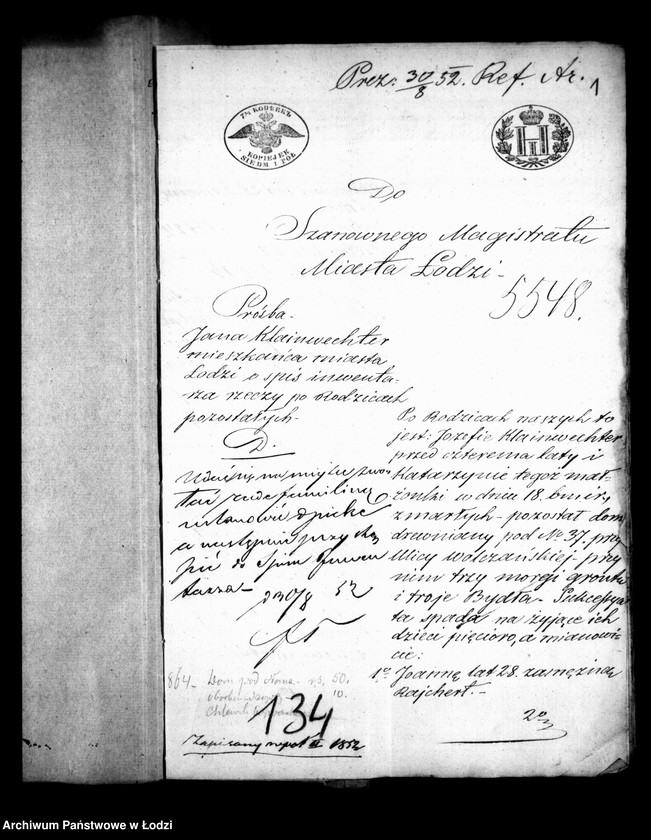 Prez: 30/8 52. Ref. Ar. 1
7½ КОПѢЕКЪ
KOPIEJEK
SIEDM I PÓŁ
Do
Szanownego Magistratu
Miasta Łodzi -
5548.
Prośba -
Jana Klainwechter
mieszkańca miasta
Łodzi o spis inwenta-
rza rzeczy po Rodzicach
pozostałych -
D.
ustanowić opiekę
a następnie przystą
pić do
tarza - d 30/8 52
Po Rodzicach naszych to
jest: Jozefie Klainwechter
przed czterema laty i
Katarzynie tegoż mał-
żonki w dniu 18. b m i r.
zmarłych - pozostał dom
drewniany pod No 37. przy
Ulicy Wolczańskiej - przy
nim trzy morgi gruntu
i troje Bydła - Sukcessya
ta spada na żyjące ich
dzieci pięcioro, a mianowi-
cie:
1o Joannę lat 28. zamężną
Rajchert. -
2o
864 - Dom pod 50.
10.
134
Zapisany 1852
Archiwum Państwowe w Łodzi